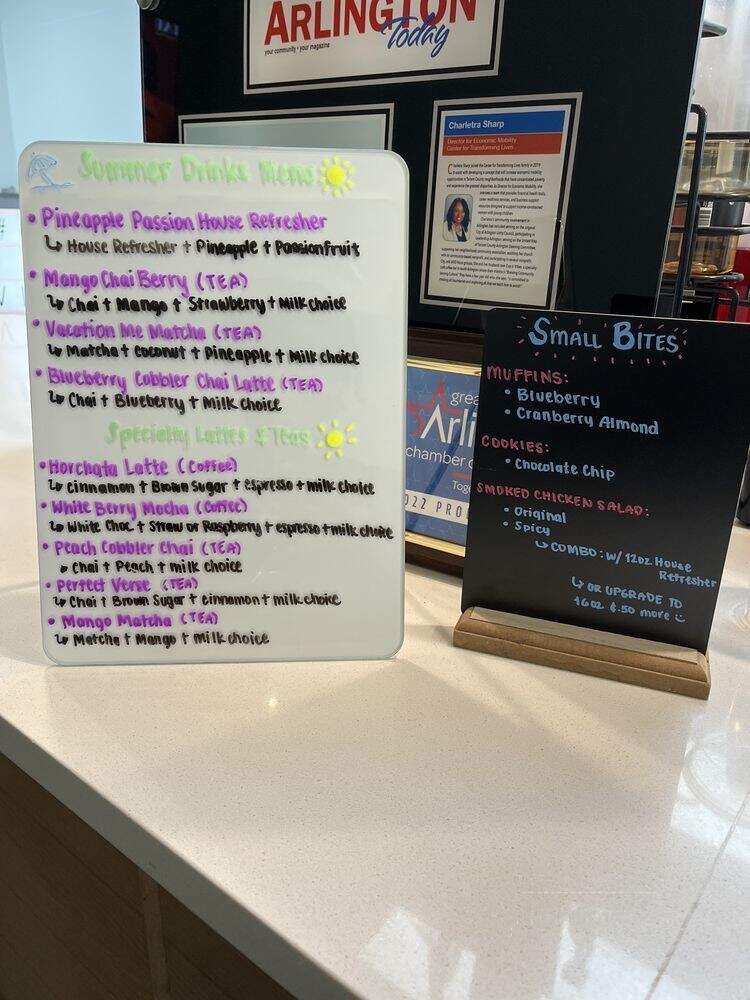 ARLINGTON
Today
your community • your magazine
Charletra Sharp
Director for Economic Mobility
Center for Transforming Lives
Summer Drinks Menu
• Pineapple Passion House Refresher
↳ House Refresher + Pineapple + Passionfruit
• Mango Chai Berry (TEA)
↳ Chai + Mango + Strawberry + Milk choice
• Vacation Me Matcha (TEA)
↳ Matcha + Coconut + Pineapple + Milk choice
• Blueberry Cobbler Chai Latte (TEA)
↳ Chai + Blueberry + Milk choice
Specialty Lattes & Teas
• Horchata Latte (Coffee)
↳ Cinnamon + Brown Sugar + espresso + milk choice
• White Berry Mocha (Coffee)
↳ White Choc + Straw or Raspberry + espresso + milk choice
• Peach Cobbler Chai (TEA)
• Chai + Peach + milk choice
• Perfect Verse (TEA)
↳ Chai + Brown Sugar + cinnamon + milk choice
• Mango Matcha (TEA)
↳ Matcha + Mango + milk choice
grea
Arli
chamber
Toge
SMALL BITES
MUFFINS:
• Blueberry
• Cranberry Almond
COOKIES:
• Chocolate Chip
SMOKED CHICKEN SALAD:
• Original
• Spicy
↳ COMBO: W/ 12oz. House
Refresher
↳ OR UPGRADE TO
16oz $.50 more